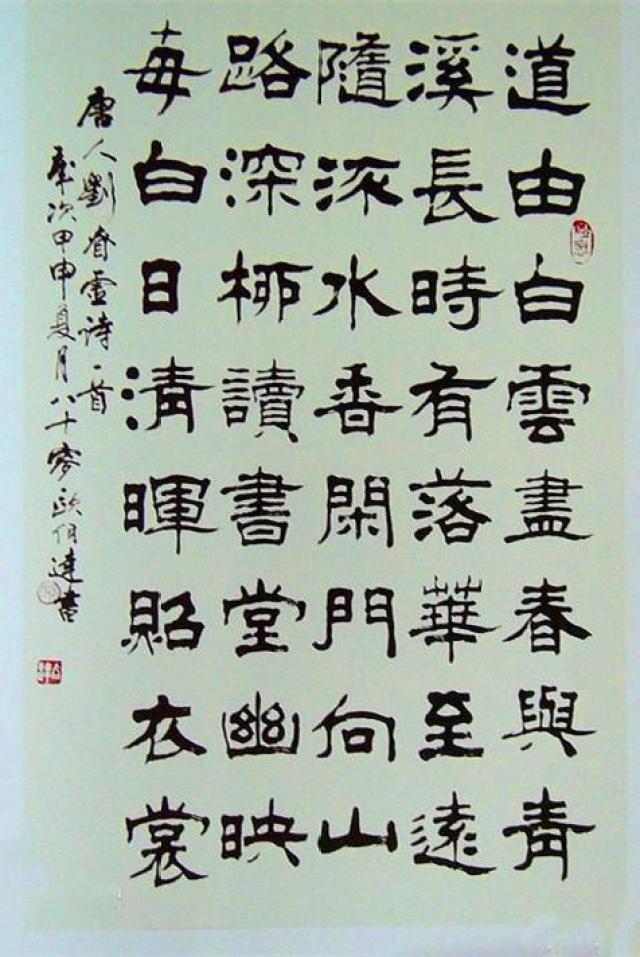 道由白雲盡春與青
溪長時有落華至遠
隨流水香閑門向山
路深柳讀書堂幽映
每白日清暉照衣裳
唐人劉眘虛诗一首
歲次甲申夏月八十零欧伯達書